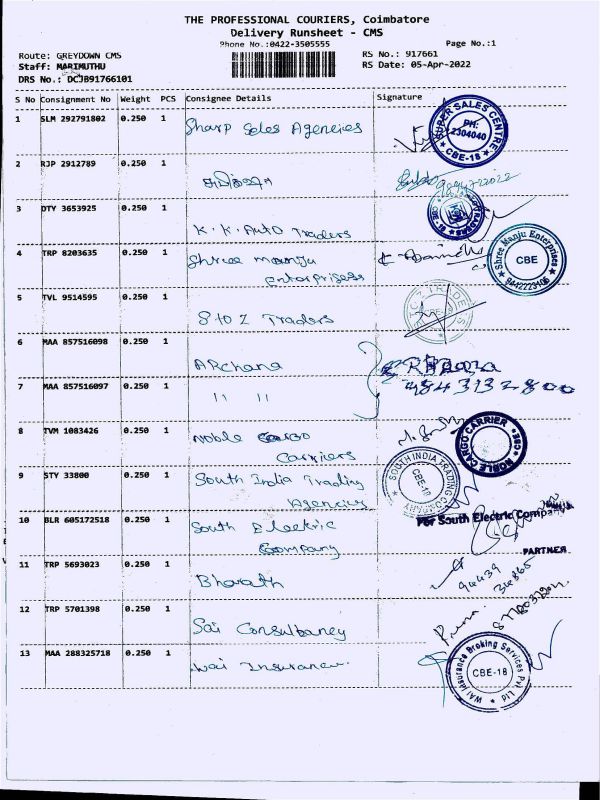 THE PROFESSIONAL COURIERS, Coimbatore
Delivery Runsheet - CMS
Phone No.:0422-3505555
Page No.:1
Route: GREYDOWN CMS
RS No.: 917661
Staff: MARIMUTHU
RS Date: 05-Apr-2022
DRS No.: DCJB91766101
S No Consignment No Weight PCS Consignee Details Signature
1 SLM 292791802 0.250 1 Sharp Sales Agencies
SUPER SALES CENTRE PH: 2304040 CBE-18
2 RJP 2912789 0.250 1
3 DTY 3653925 0.250 1 K.K. Auto Traders
4 TRP 8203635 0.250 1 Shree manju enterprises
Shree Manju Enterprises CBE 9442223406
5 TVL 9514595 0.250 1 S to Z Traders
6 MAA 857516098 0.250 1 ARchana
7 MAA 857516097 0.250 1 " "
9843132800
8 TVM 1083426 0.250 1 Noble Cargo Carriers
NOBLE CARGO CARRIER CBE
9 STY 33800 0.250 1 South India Trading Agencies
SOUTH INDIA TRADING COMPANY CBE-18
10 BLR 605172518 0.250 1 South Electric Company
For South Electric Company
PARTNER
11 TRP 5693023 0.250 1 Bharath
94439
34865
12 TRP 5701398 0.250 1 Sai Consultancy
13 MAA 288325718 0.250 1 Wai Insurance
WAI Insurance Broking Services Pvt. Ltd CBE-18